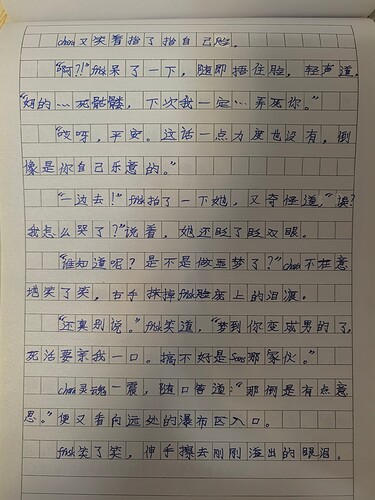 chara又笑着指了指自己脸。
"啊?!"frisk呆了一下，随即捂住脸，轻声道，
"妈的…死骷髅，下次我一定…弄死你。"
"哎呀，平安。这话一点力度也没有，倒
像是你自己乐意的。"
"一边去！"frisk拍了一下她，又奇怪道，"诶?
我怎么哭了?"说着，她还眨了眨双眼。
"谁知道呢？是不是做噩梦了?"chara不在意
地笑了笑，右手抹掉frisk脸蛋上的泪痕。
"还真别说。"frisk笑道，"梦到你变成男的了，
死活要亲我一口。搞不好是Sans那家伙。"
chara灵魂一震，随口答道："那倒是有点意
思。"便又看向远处的瀑布区入口。
frisk笑了笑，伸手擦去刚刚溢出的眼泪。